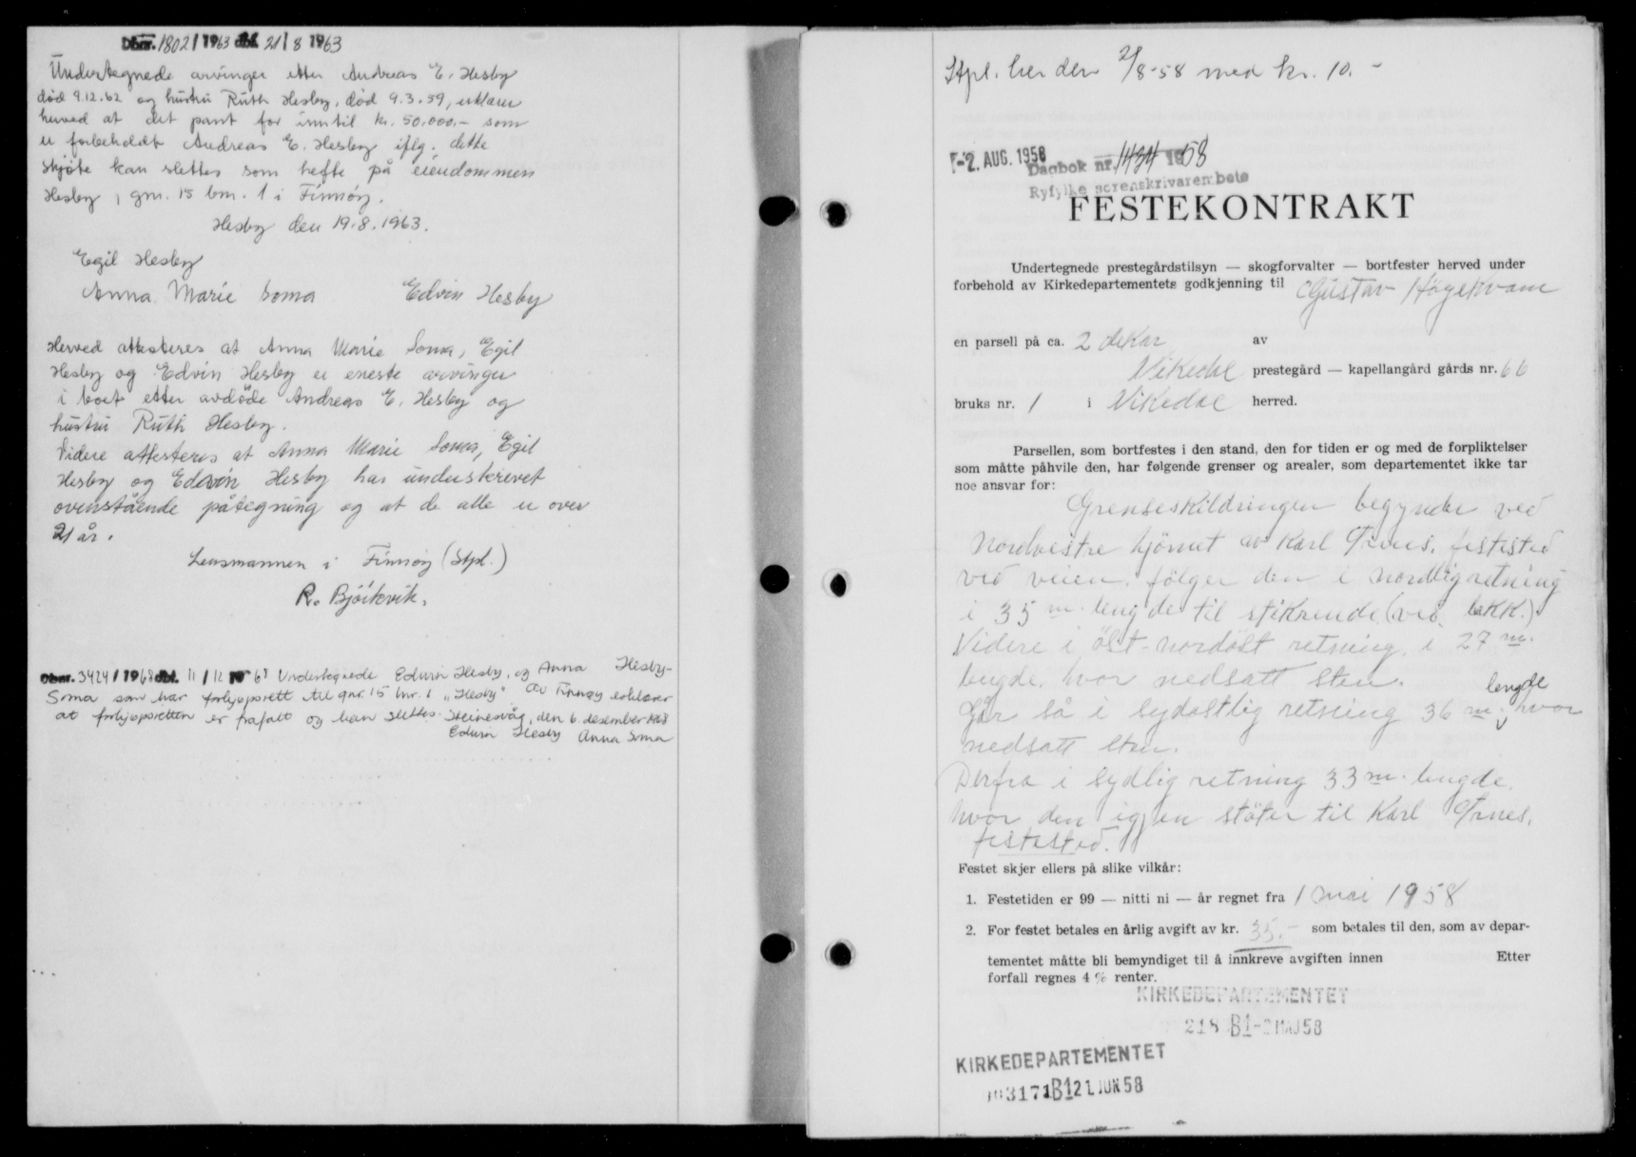 Dbnr. 1802 / 1963 dbf. 21/8 1963
Undertegnede arvinger etter Andreas E. Hesby
død 9.12.62 og hustru Ruth Hesby, død 9.3.59, erklærer
herved at det pant for inntil kr. 50.000.- som
er forbeholdt Andreas E. Hesby iflg. dette
skjøte kan slettes som hefte på eiendommen
Hesby, gnr. 15 bnr. 1 i Finnøy.
Hesby den 19.8.1963.
Egil Hesby
Anna Marie Soma Edvin Hesby
Herved attesteres at Anna Marie Soma, Egil
Hesby og Edvin Hesby er eneste arvinger
i boet etter avdöde Andreas E. Hesby og
hustru Ruth Hesby.
Videre attesteres at Anna Marie Soma, Egil
Hesby og Edvin Hesby har underskrevet
ovenstående påtegning og at de alle er over
21 år.
Lensmannen i Finnøy (Stpl.)
R. Bjórkvik.
Dbnr. 3424 / 1968 dbf. 11/12 1968 Undertegnede Edvin Hesby, og Anna Hesby-
Soma som har forkjøpsrett til gnr. 15 bnr. 1 "Hesby" av Finnøy erklærer
at forkjøpsretten er frafalt og kan slettes. Steinesvåg, den 6. desember 1968
Edvin Hesby Anna Soma
Stpl. her den 2/8-58 med kr. 10.-
-2. AUG. 1958
Dagbok nr. 1434 1958
Ryfylke sorenskrivarembete
FESTEKONTRAKT
Undertegnede prestegårdstilsyn — skogforvalter — bortfester herved under
forbehold av Kirkedepartementets godkjenning til Gustav Høgekvam
en parsell på ca. 2 dekar av
Vikedal prestegård — kapellangård gårds nr. 66
bruks nr. 1 i Vikedal herred.
Parsellen, som bortfestes i den stand, den for tiden er og med de forpliktelser
som måtte påhvile den, har følgende grenser og arealer, som departementet ikke tar
noe ansvar for:
Grenseskildringen begynder ved
Nordvestre hjörnet av Karl festested
ved veien. følger den i nordlig retning
i 35 m. lengde til stikrende (ved bekk).
Videre i öst-nordöst retning, i 27 m.
lengde, hvor nedsatt sten.
Går så i sydöstlig retning 36 m. lengde, hvor
nedsatt sten.
Derfra i sydlig retning 33 m. lengde.
hvor den igjen støter til Karl
festested.
Festet skjer ellers på slike vilkår:
1. Festetiden er 99 — nitti ni — år regnet fra 1 mai 1958
2. For festet betales en årlig avgift av kr. 35.- som betales til den, som av depar-
tementet måtte bli bemyndiget til å innkreve avgiften innen Etter
forfall regnes 4 % renter.
KIRKEDEPARTEMENTET
218 B1-2 MAJ 58
KIRKEDEPARTEMENTET
03171 B1 21 JUN 58